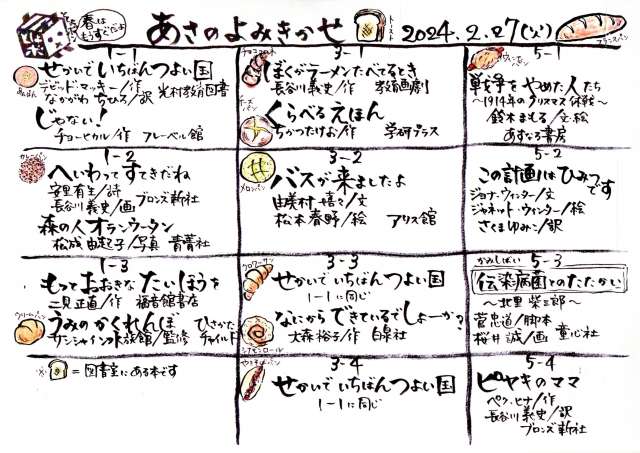 春は
もうすぐだよ
あさのよみきかせ
トースト
2024.2.27(火)
フランスパン
1-1
せかいでいちばんつよい国
デビッド・マッキー/作
なかがわちひろ/訳 光村教育図書
あんぱん
じゃない!
チョーヒカル/作 フレーベル館
3-1
チョココロネ
ぼくがラーメンたべてるとき
長谷川義史/作 教育画劇
くらべるえほん
ちかつたけお/作 学研プラス
5-1
戦争をやめた人たち
~1914年のクリスマス休戦~
鈴木まもる/文・絵
あすなろ書房
1-2
カレーパン
へいわってすてきだね
安里有生/詩
長谷川義史/画 ブロンズ新社
森の人オランウータン
松成由起子/写真 青菁社
3-2
メロンパン
バスが来ましたよ
由美村嬉々/文
松本春野/絵 アリス館
5-2
この計画はひみつです
ジョナ・ウィンター/文
ジャネット・ウィンター/絵
さくまゆみこ/訳
1-3
もっとおおきなたいほうを
二見正直/作 福音館書店
クリームパン
うみのかくれんぼ ひさかた
サンシャイン水族館/監修 チャイルド
3-3
クロワッサン
せかいでいちばんつよい国
1-1に同じ
なにからできているでしょーか?
大森裕子/作 白泉社
シナモンロール
かみしばい 5-3
伝染病菌とのたたかい
~北里柴三郎~
菅忠道/脚本
桜井誠/画 童心社
※ =図書室にある本です
3-4
やきそばパン
せかいでいちばんつよい国
1-1に同じ
5-4
ピヤキのママ
ペク・ヒナ/作
長谷川義史/訳
ブロンズ新社